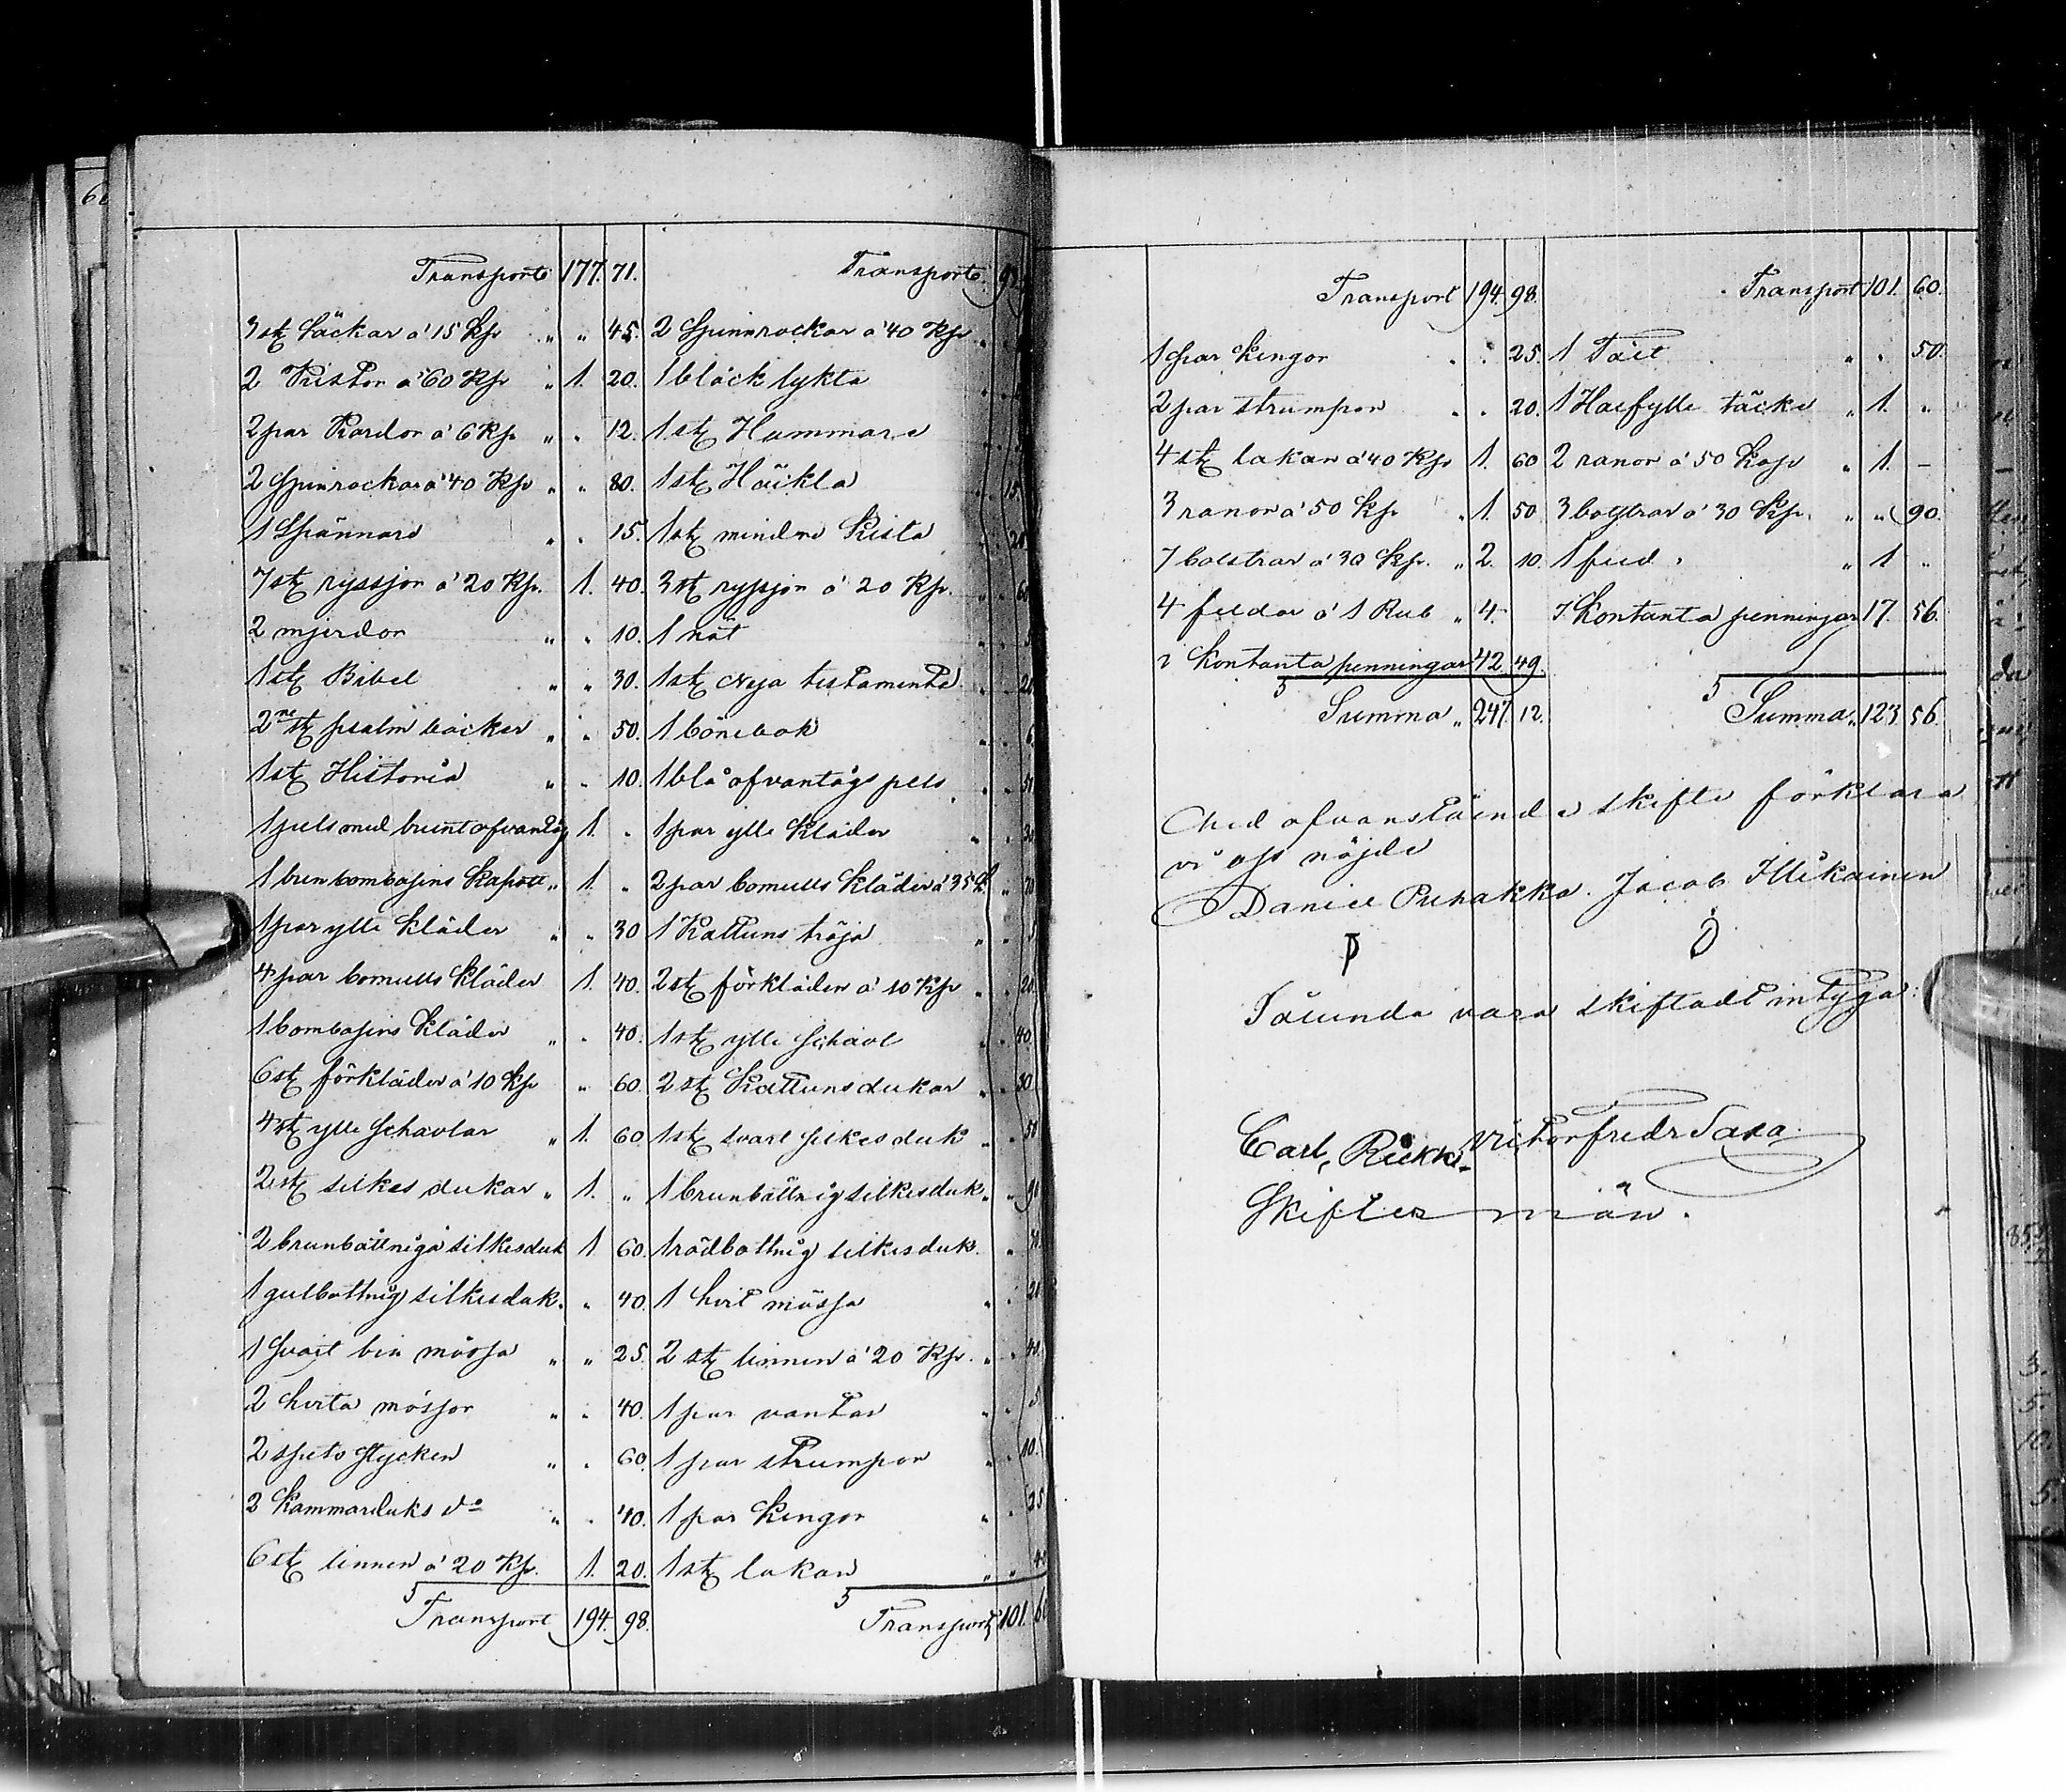 Transport 177. 71.
3 st. Säckar á 15 Kp „ „ 45.
2 Kistor á 60 Kp „ 1. 20.
2 par Kardor á 6 Kp. „ „ 12.
2 Spinrockar á 40 Kp „ „ 80.
1 Spännare „ „ 15.
7 st. ryssjor á 20 Kp. 1. 40.
2 mjerdor „ „ 10.
1 st. Bibel „ „ 30.
2ne st. psalm böcker „ „ 50.
1 st. Historia „ „ 10.
1 pels med brunt ofvantÿg 1. „
1 brun bombasins Kapott „ 1. „
1 par ylle Kläder „ „ 30
4 par bomulls Kläder 1. 40.
1 bombasins Kläder „ „ 40.
6 st. förkläder á 10 Kp „ 60.
4 st. ylle schavlar „ 1. 60
2 st. silkes dukar „ 1. „
2 brunbåttniga silkesduk 1 60.
1 gulbottnig silkesduk. „ 40.
1 svart bin mössa „ „ 25.
2 hvita mössor „ „ 40.
2 spets stycken „ „ 60.
2 Kammarduks do „ „ 40.
6 st. linnen á 20 Kp. 1. 20.
Transport 194. 98.
Transport. 93.
2 Spinnrockar á 40 Kp „ „
1 bläck lykta „ „
1 st. Hammare
1 st. Häckla „ „ 15.
1 st. mindre Kista „ „ 20
3 st. ryssjor á 20 Kp. „ „ 60
1 nät
1 st. Nya testamente „ „ 20
1 bönebok „ „ 6
1 blå ofvantÿgs pels „ „ 50
1 par ylle Kläder „ „ 30
2 par bomulls Kläder á 35 „ 70
1 Kattuns tröja „ „ 5
2 st. förkläden á 10 Kp „ „ 20.
1 st. ylle schavl „ „ 40.
2 st. Kattunsdukar „ „ 30.
1 st. svart silkes duk „ „ 50
1 brunbåttnig silkesduk. „ „ 90
1 rödbottnig silkesduk. „
1 hvit mössa „ „ 20
2 st. linnen á 20 Kp. „ „ 40.
1 par vantar „ „ 5
1 par strumpor „ „ 10.
1 par Kengor „ „ 25
1 st. lakan „ „ 40
Transport 101. 60
Transport 194. 98.
1 par Kengor „ „ 25.
2 par strumpor „ „ 20.
4 st. lakan á 40 Kp 1. 60
3 ranor á 50 Kp. „ 1. 50
7 bolstrar á 30 Kp. „ 2. 10.
4 fieldar á 1 Rub „ 4.
i Kontanta penningar 42. 49.
Summa „ 247. 12.
Transport 101. 60.
1 Tält „ „ 50.
1 Halfylle täcke „ 1. „
2 ranor á 50 Kop „ 1. –
3 bolstrar á 30 Kp. „ „ 90.
1 field „ „ 1 „
i Kontanta penningar 17. 56.
Summa „ 123 56.
Med ofvanstående skifte förklara
vi oss nöjde
Daniel Puhakka. Jacob Illikainen
Sålunda vara skiftadt intÿga:
Carl, Riekki Victor fredr Sara.
Skiftes män.